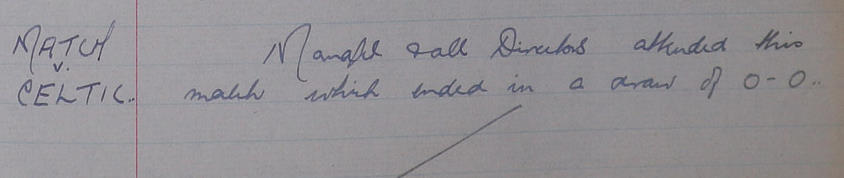 MATCH
V.
CELTIC.
Manager & all Directors attended this
match which ended in a draw of 0-0..